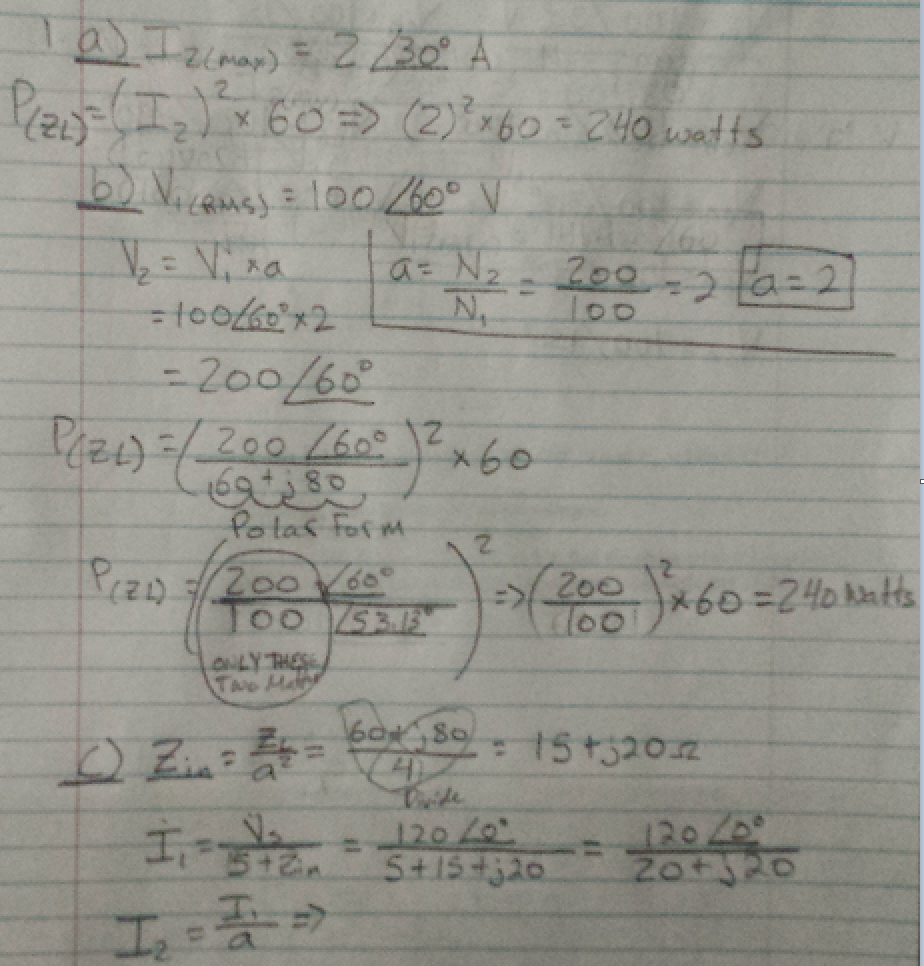 1 a) I₂(max) = 2 ∠30° A
P(ZL) = (I₂)² × 60 => (2)² × 60 = 240 watts
b) V₁(RMS) = 100 ∠60° V
V₂ = V₁ × a
= 100∠60° × 2
= 200 ∠60°
a = N₂/N₁ = 200/100 = 2 a = 2
P(ZL) = (200 ∠60° / 60 + j80)² × 60
Polar Form
P(ZL) = (200 ∠60° / 100 ∠53.13°)² => (200/100)² × 60 = 240 watts
ONLY THESE
Two Matter
c) Zin = ZL/a² = 60 + j80 / 4 = 15 + j20 Ω
Divide
I₁ = / 5 + Zin = 120 ∠0° / 5 + 15 + j20 = 120 ∠0° / 20 + j20
I₂ = I₁/a =>